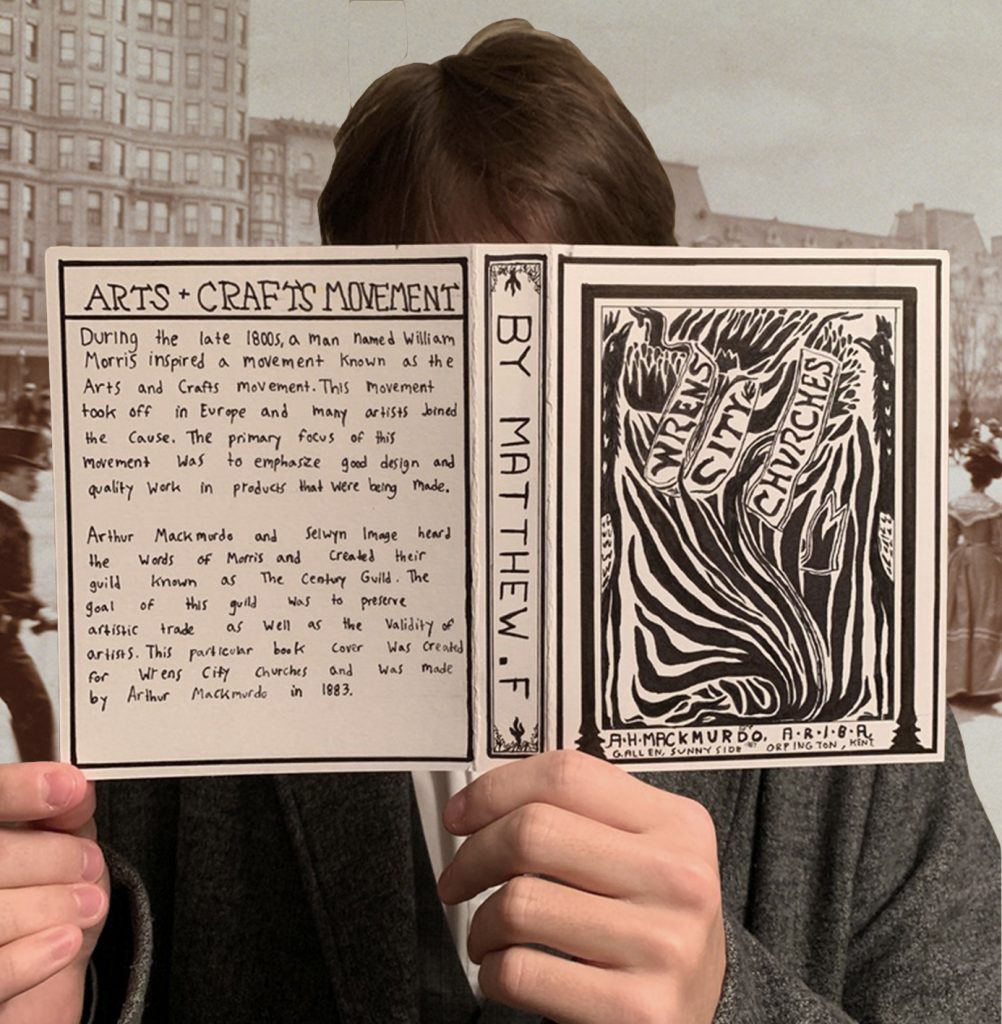 ARTS + CRAFTS MOVEMENT
During the late 1800s, a man named William
Morris inspired a movement known as the
Arts and Crafts movement. This movement
took off in Europe and many artists joined
the cause. The primary focus of this
movement was to emphasize good design and
quality work in products that were being made.
Arthur Mackmurdo and Selwyn Image heard
the words of Morris and created their
guild known as The Century Guild. The
goal of this guild was to preserve
artistic trade as well as the validity of
artists. This particular book cover was created
for Wrens City Churches and was made
by Arthur Mackmurdo in 1883.
BY MATTHEW. F
WRENS
CITY
CHVRCHES
A·H·MACKMURDO, A·R·I·B·A,
G.ALLEN, SUNNYSIDE ORPINGTON, KENT